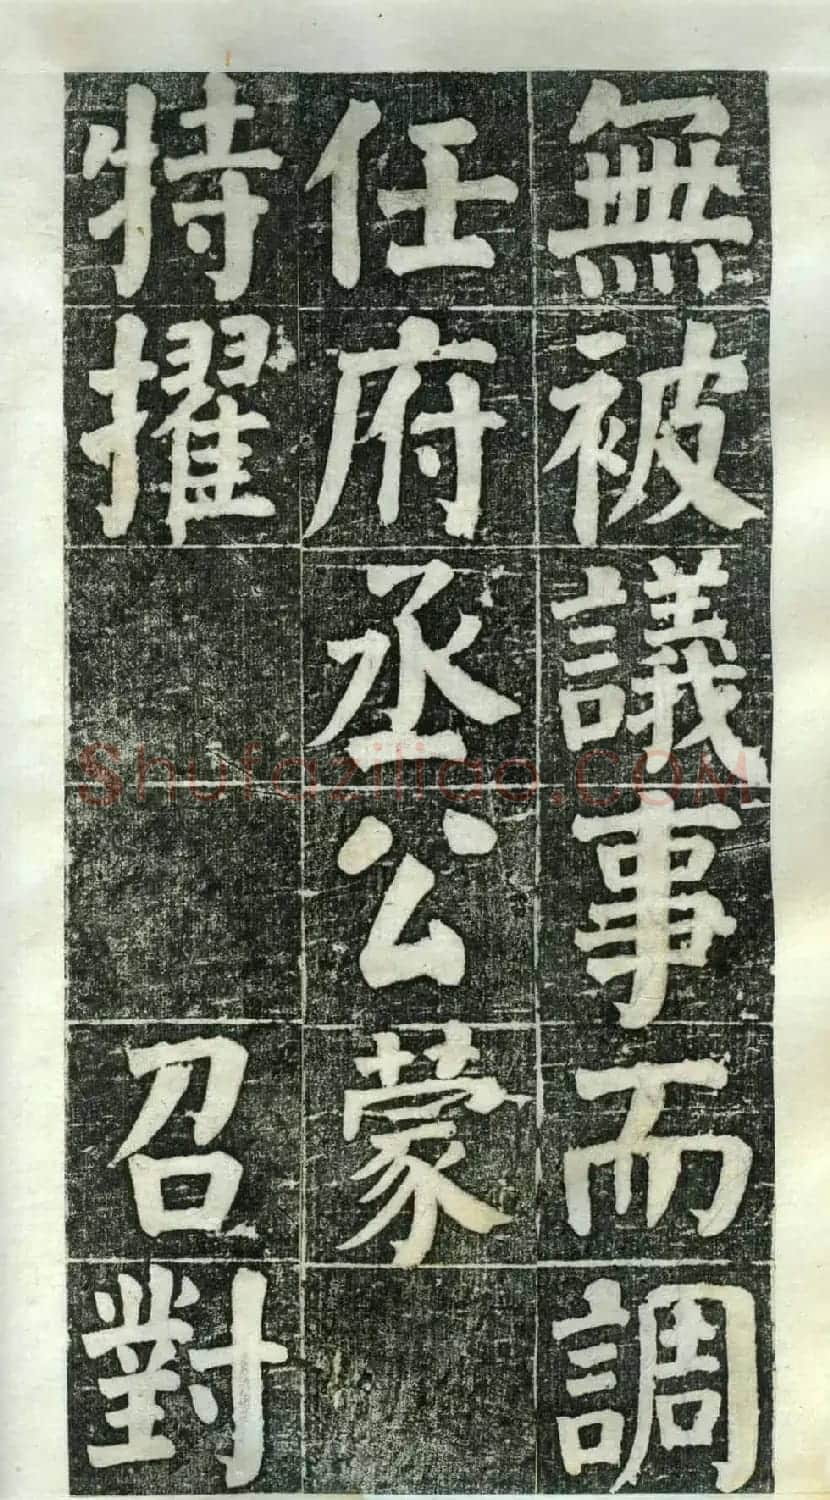 無被議事而調
任府丞公蒙
特擢 召對
Shufaziliao.COM